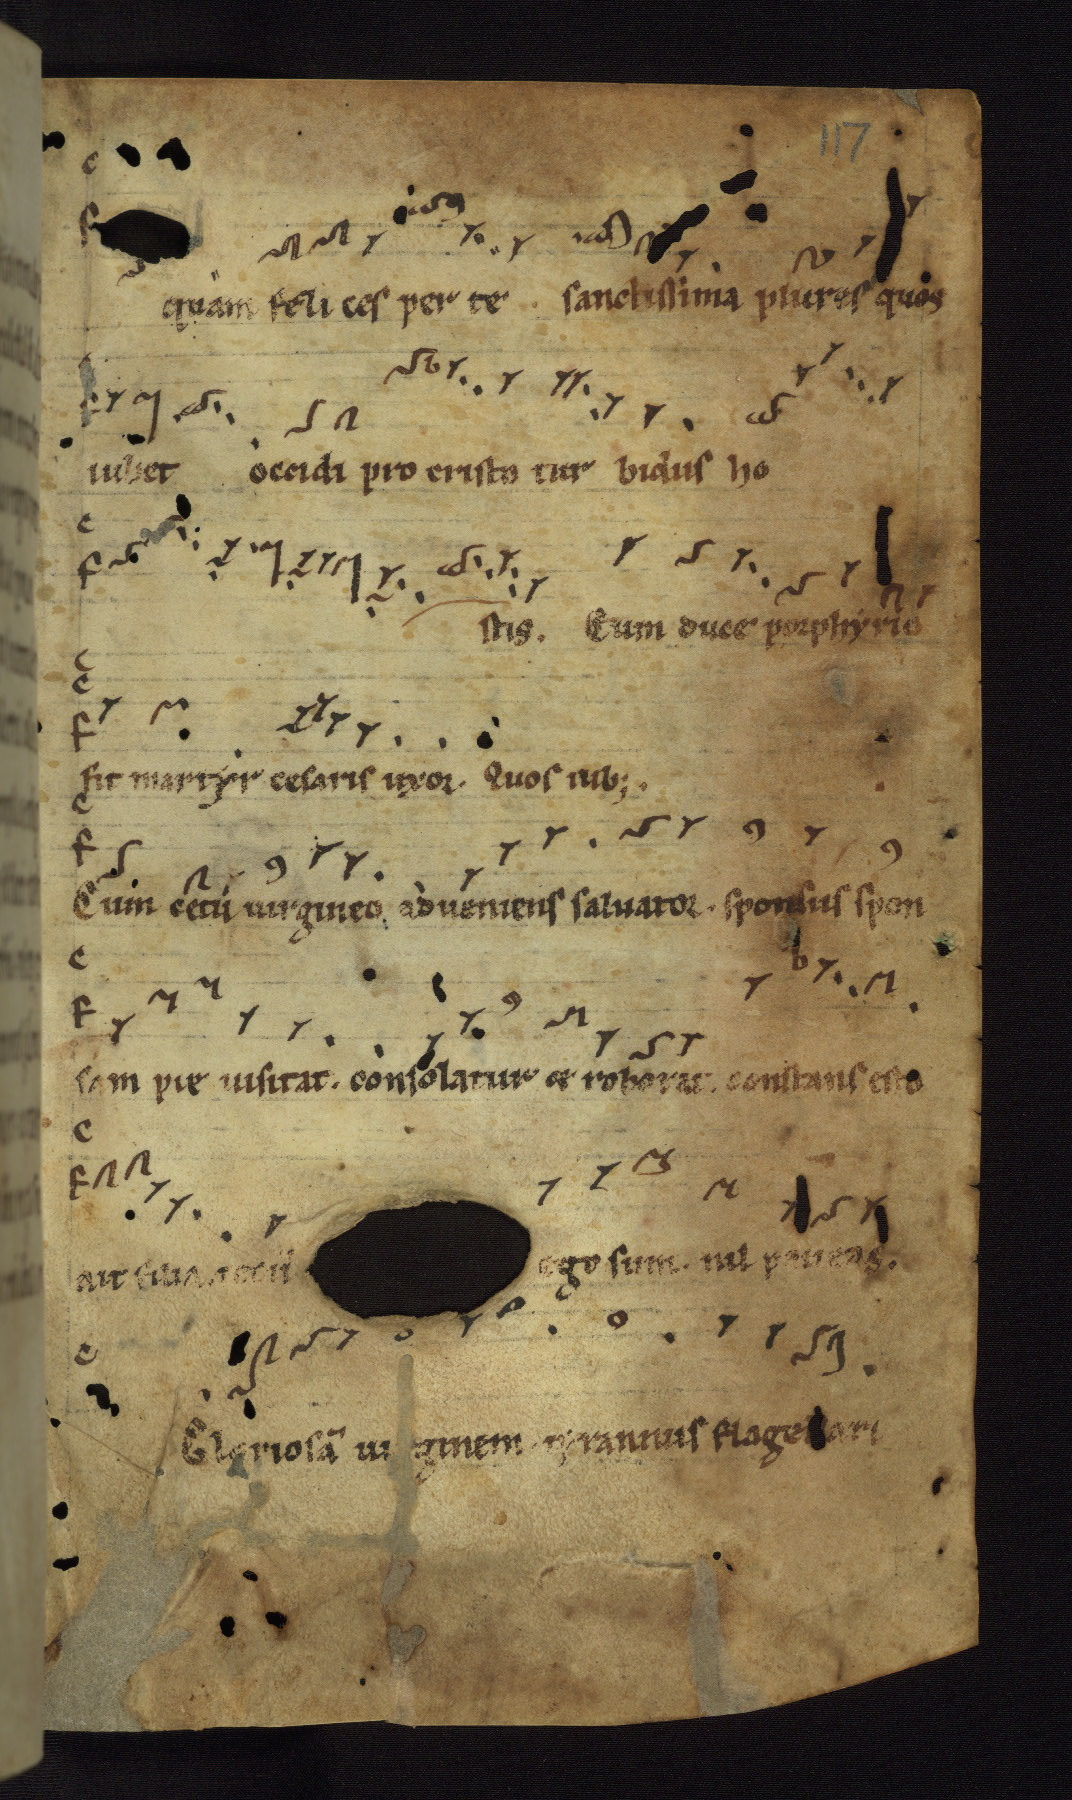 117
quam feli ces per te . sanctissima plures quos
iubet occidi pro cristo tur bidus ho
stis. Cum duce porphyrio
fit martyr cesaris uxor. Quos iub;.
Cum cetu uirgineo adueniens saluator. sponsus spon
sam pie uisitat. consolatur et roborat. constans esto
ait filia. tecū ego sum. nil paueas.
Gloriosā uirginem tyrannus flagellari